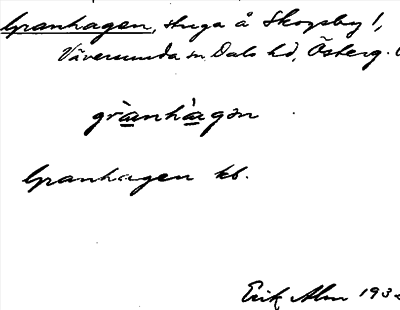 Granhagen, stuga å Skogsby 1,
Väversunda sn, Dals hd, Österg.
grànhàgən
Granhagen kb.
Erik Alm 193